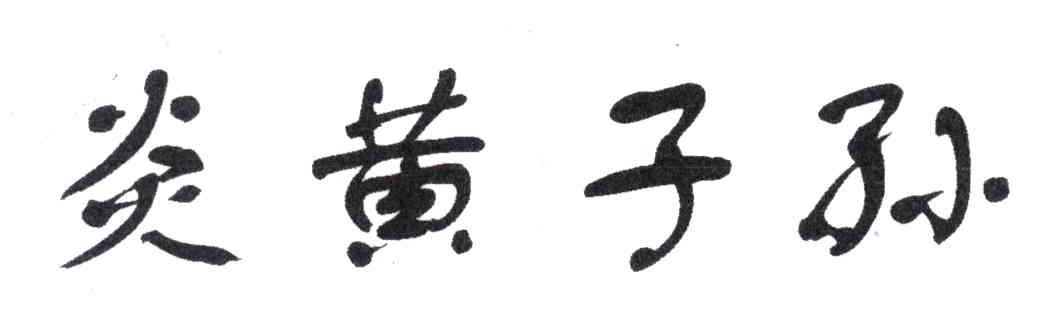 炎黄子孙